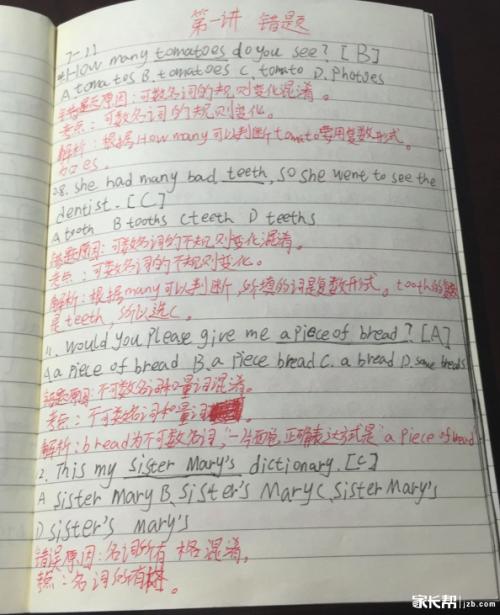 第一讲 错题
7-11
*1 How many tomatoes do you see? [B]
A tomatos B. tomatoes C. tomato D. Photoes
错误原因：可数名词的规则变化混淆。
考点：可数名词的规则变化。
解析：根据How many可以判断tomato要用复数形式。
加es。
8. She had many bad teeth, so she went to see the
dentist. [C]
A tooth B tooths C teeth D teeths
错题原因：可数名词的不规则变化混淆。
考点：可数名词的不规则变化。
解析：根据many可以判断，所填的词是复数形式。tooth的复数
是teeth，所以选C。
11. Would you please give me a piece of bread? [A]
A a piece of bread B. a piece bread C. a bread D. some breads
错题原因：不可数名词和量词混淆。
考点：不可数名词和量词
解析：bread为不可数名词，"一片面包"正确表达方式是"a piece of bread
2. This my sister Mary's dictionary. [C]
A sister Mary B. sister's Mary C. sister Mary's
D sister's mary's
错误原因：名词所有格混淆。
考点：名词所有格。
家长帮 jzb.com